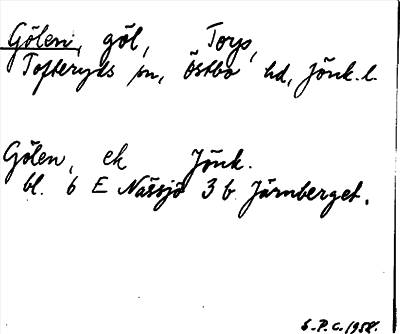 Gölen, göl, Torp,
Tofteryds sn, Östbo hd, Jönk. l.
Gölen, ek Jönk.
bl. 6 E Nässjö 3 b Järnberget.
S.P.C. 1958.